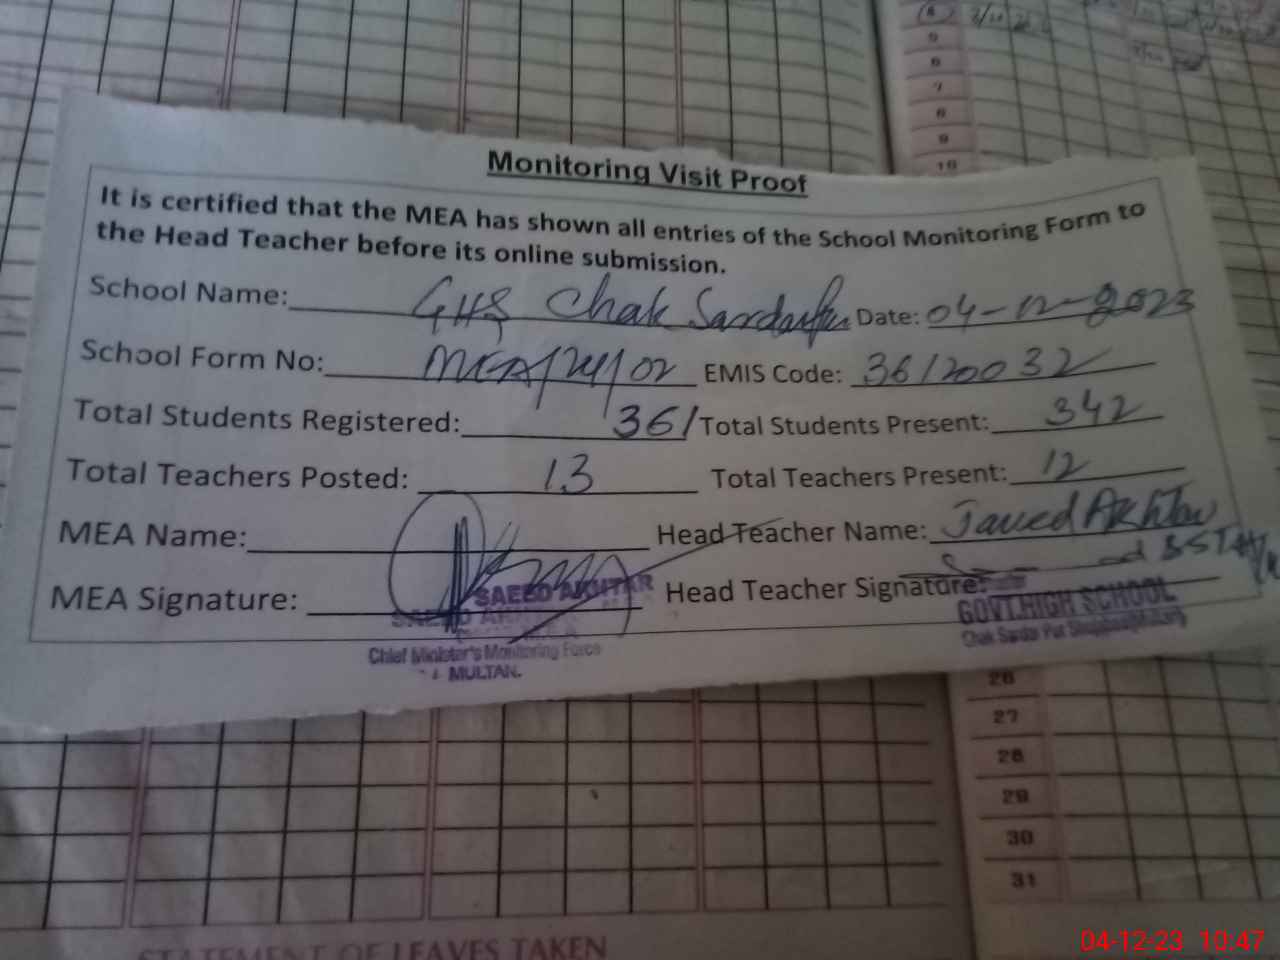 Monitoring Visit Proof
It is certified that the MEA has shown all entries of the School Monitoring Form to
the Head Teacher before its online submission.
School Name: GHS Chak Sardarpur Date: 04-12-2023
School Form No: MEA/24/02 EMIS Code: 36120032
Total Students Registered: 361 Total Students Present: 342
Total Teachers Posted: 13 Total Teachers Present: 12
MEA Name: Head Teacher Name: Javed Akhtar
SAEED AKHTAR
MEA Signature: Head Teacher Signature:
GOVT.HIGH SCHOOL
Chief Minister's Monitoring Force
MULTAN.
8
9
10
26
27
28
29
30
31
STATEMENT OF LEAVES TAKEN
04-12-23 10:47